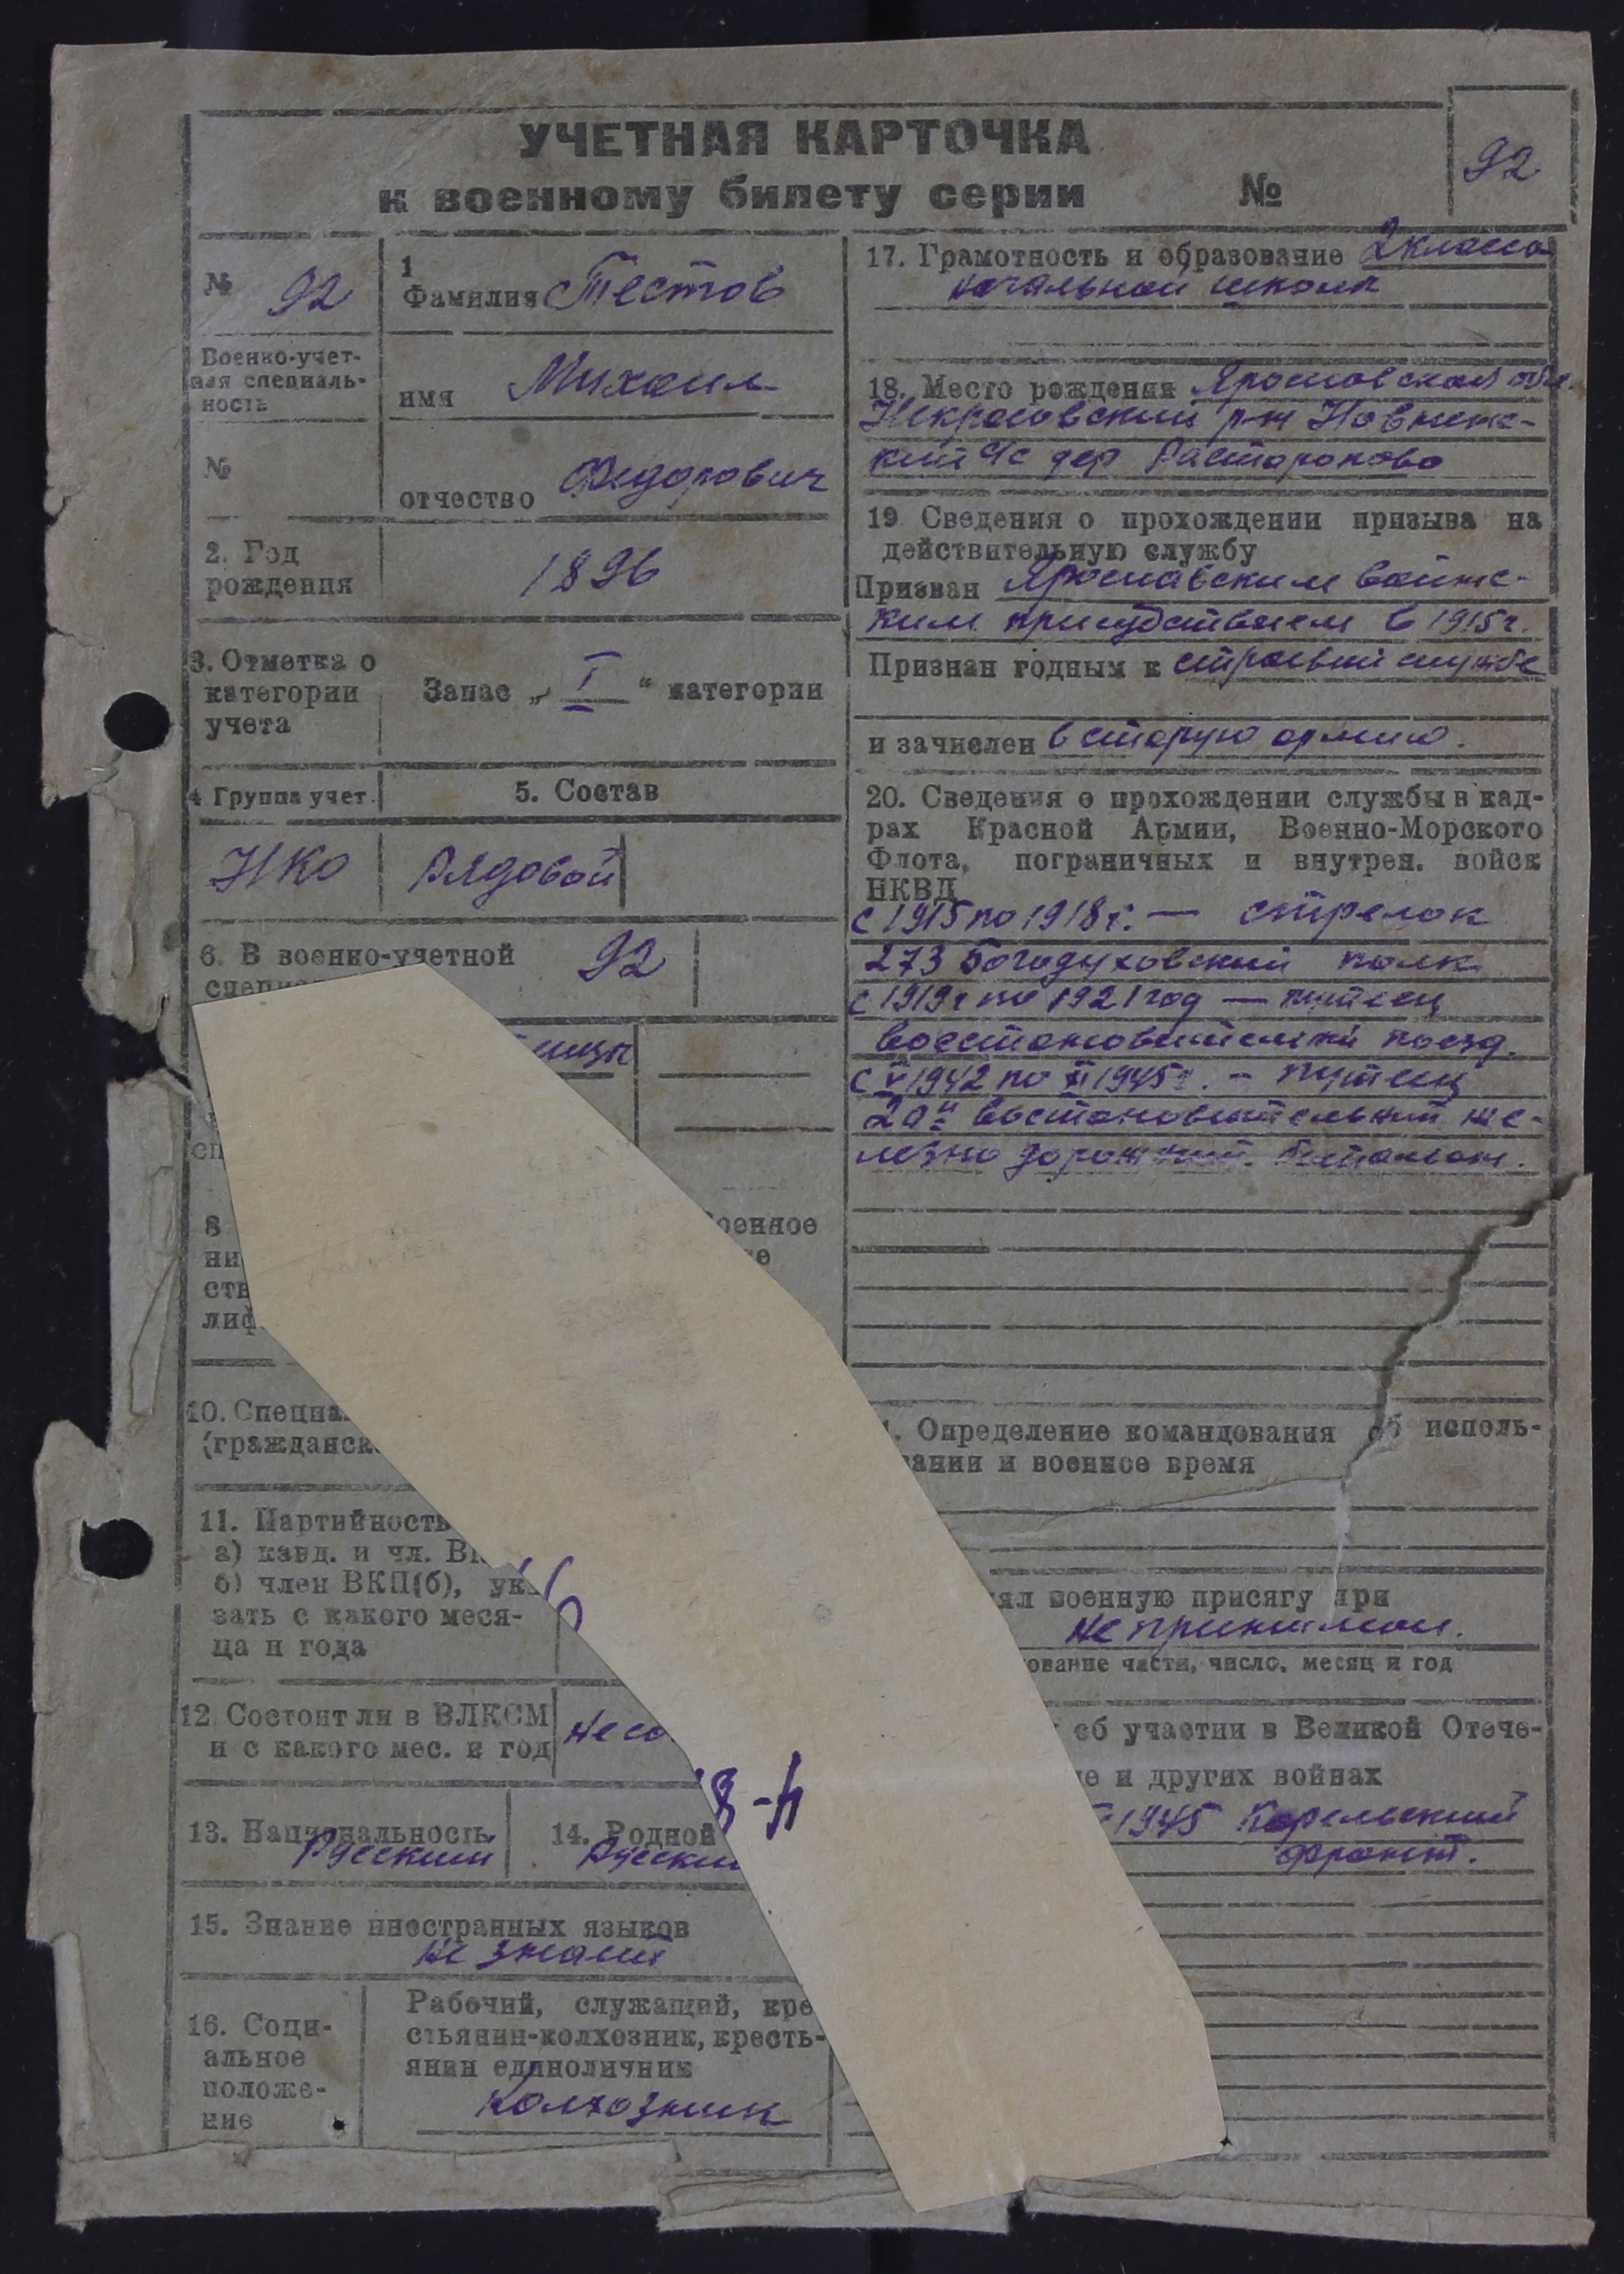 УЧЕТНАЯ КАРТОЧКА
к военному билету серии №
92
№ 92
Военно-учет-
ная специаль-
ность
№
1
Фамилия Тестов
имя Михаил
отчество Федорович
2. Год
рождения
1896
3. Отметка о
категории
учета
Запас „ I “ категории
4 Группа учет.
5. Состав
НКО
Рядовой
6. В военно-учетной
92
8
10. Специа
(гражданск
11. Партийность
а) канд. и чл. В
б) член ВКП(б), ук
зать с какого меся-
ца и года
12 Состоит ли в ВЛКСМ
и с какого мес. и год
не со
8-н
13. Национальность
Русский
14. Родной
Русский
15. Знание иностранных языков
не знает
16. Соци-
альное
положе-
ние
Рабочий, служащий, кре
стьянин-колхозник, кресть-
янин единоличник
Колхозник
17. Грамотность и образование 2 класса
начальной школы
18. Место рождения Ярославская обл.
Некрасовский р-н
дер Расторопово
19 Сведения о прохождении призыва на
действительную службу
Призван Ярославским воинс-
ким присудствием в 1915 г.
Признан годным к строевой службе
и зачислен в старую армию.
20. Сведения о прохождении службы в кад-
рах Красной Армии, Военно-Морского
Флота, пограничных и внутрен. войск
НКВД
с 1915 по 1918 г. — стрелок
273 Богодуховский полк
с 1919 г по 1921 год — путеец
восстановительный поезд.
с V 1942 по XI 1945 г. – путеец
востановительный же-
лезно дорожный батальон.
. Определение командования об исполь-
вании и военное время
ял военную присягу при
не принимал.
ование части, число, месяц и год
об участии в Великой Отече-
е и других войнах
1945 Карельский
фронт.